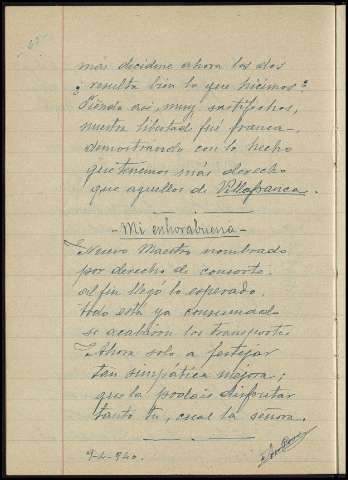 mas decidme ahora los dos
¿resulta bien lo que hicimos?
Siendo así, muy sattisfechos,
nuestra libertad fué franca,
demostrando con lo hecho
que tenemos más derecho
que aquellos de Villafranca.
- Mi enhorabuena -
Nuevo Maestro nombrado
por derecho de consorte.
al fin llegó lo esperado,
todo está ya consumado
se acabaron los transportes
Ahora solo a festejar
tan simpática mejora;
que la podais disfrutar
tanto tu, cual la señora.